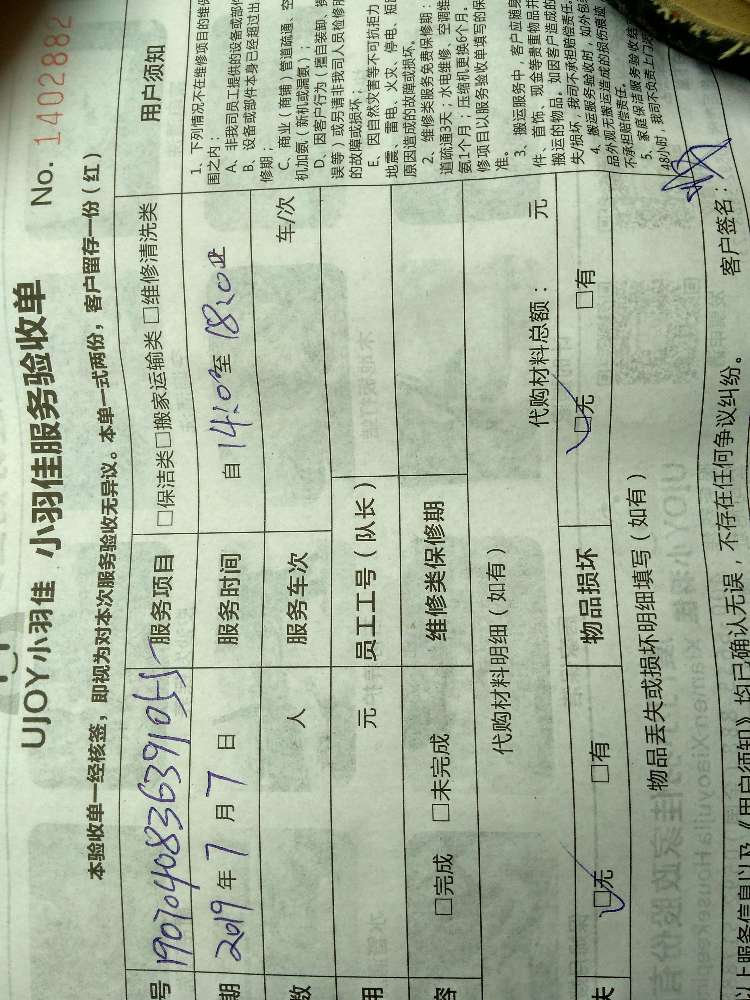 UJOY小羽佳 小羽佳服务验收单 No. 1402882
本验收单一经核签，即视为对本次服务验收无异议。本单一式两份，客户留存一份（红）
号 1907040836391055 服务项目 □保洁类□搬家运输类 □维修清洗类 用户须知
期 2019年7月7日 服务时间 自14:00至18:00
数 人 服务车次 车/次
用 元 员工工号（队长）
容 □完成 □未完成 维修类保修期
代购材料明细（如有） 代购材料总额： 元
失 ☑无 □有 物品损坏 ☑无 □有
物品丢失或损坏明细填写（如有）
以上服务信息以及《用户须知》均已确认无误，不存在任何争议纠纷。 客户签名：
1、下列情况不在维修项目的维保
围之内：
A、非我司员工提供的设备或部件
B、设备或部件本身已经超过出
修期；
C、商业（商铺）管道疏通、空
机加氨，（新机或漏氨）；
D、因客户行为（擅自装卸、
误等）或另请非我司人员检修
的故障或损坏；
E、因自然灾害等不可抗拒力
地震、雷电、火灾、停电、短
原因造成的故障或损坏。
2、维修类服务免费保修期：
道疏通3天；水电维修、空调维
氨1个月；压缩机更换6个月。
修项目以服务验收单填写的保
准。
3、搬运服务中，客户应随身
件、首饰、现金等贵重物品并
搬运的物品。如因客户造成的
失/损坏，我司不承担赔偿责任。
4、搬运服务验收时，如外包
品外观无搬运造成的损伤痕迹
不承担赔偿责任。
5、家庭保洁服务验收
48小时，我司不负责上门